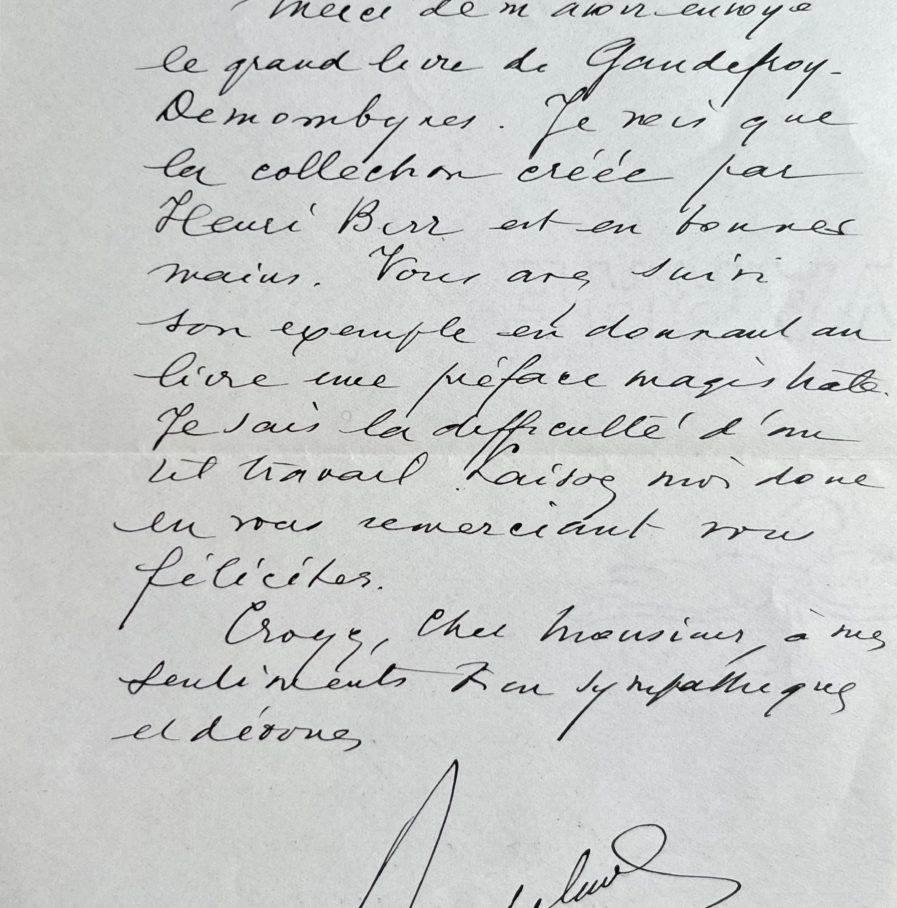 Merci de m'avoir envoyé
le grand livre de Gaudefroy-
Demombynes. Je vois que
la collection créée par
Henri Berr est en bonnes
mains. Vous avez suivi
son exemple en donnant au
livre une préface magistrale.
Je sais la difficulté d'un
tel travail. Laissez moi donc
en vous remerciant vous
féliciter.
Croyez, Cher Monsieur, à mes
sentiments bien sympathiques
et dévoués